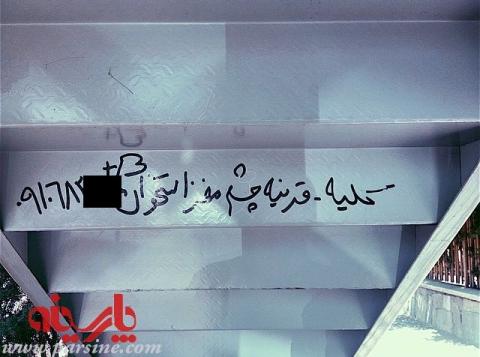 کلیه - قرنیه چشم مغز استخوان B+
۰۹۱۰۶۸۳
پارسینه
www.parsine.com